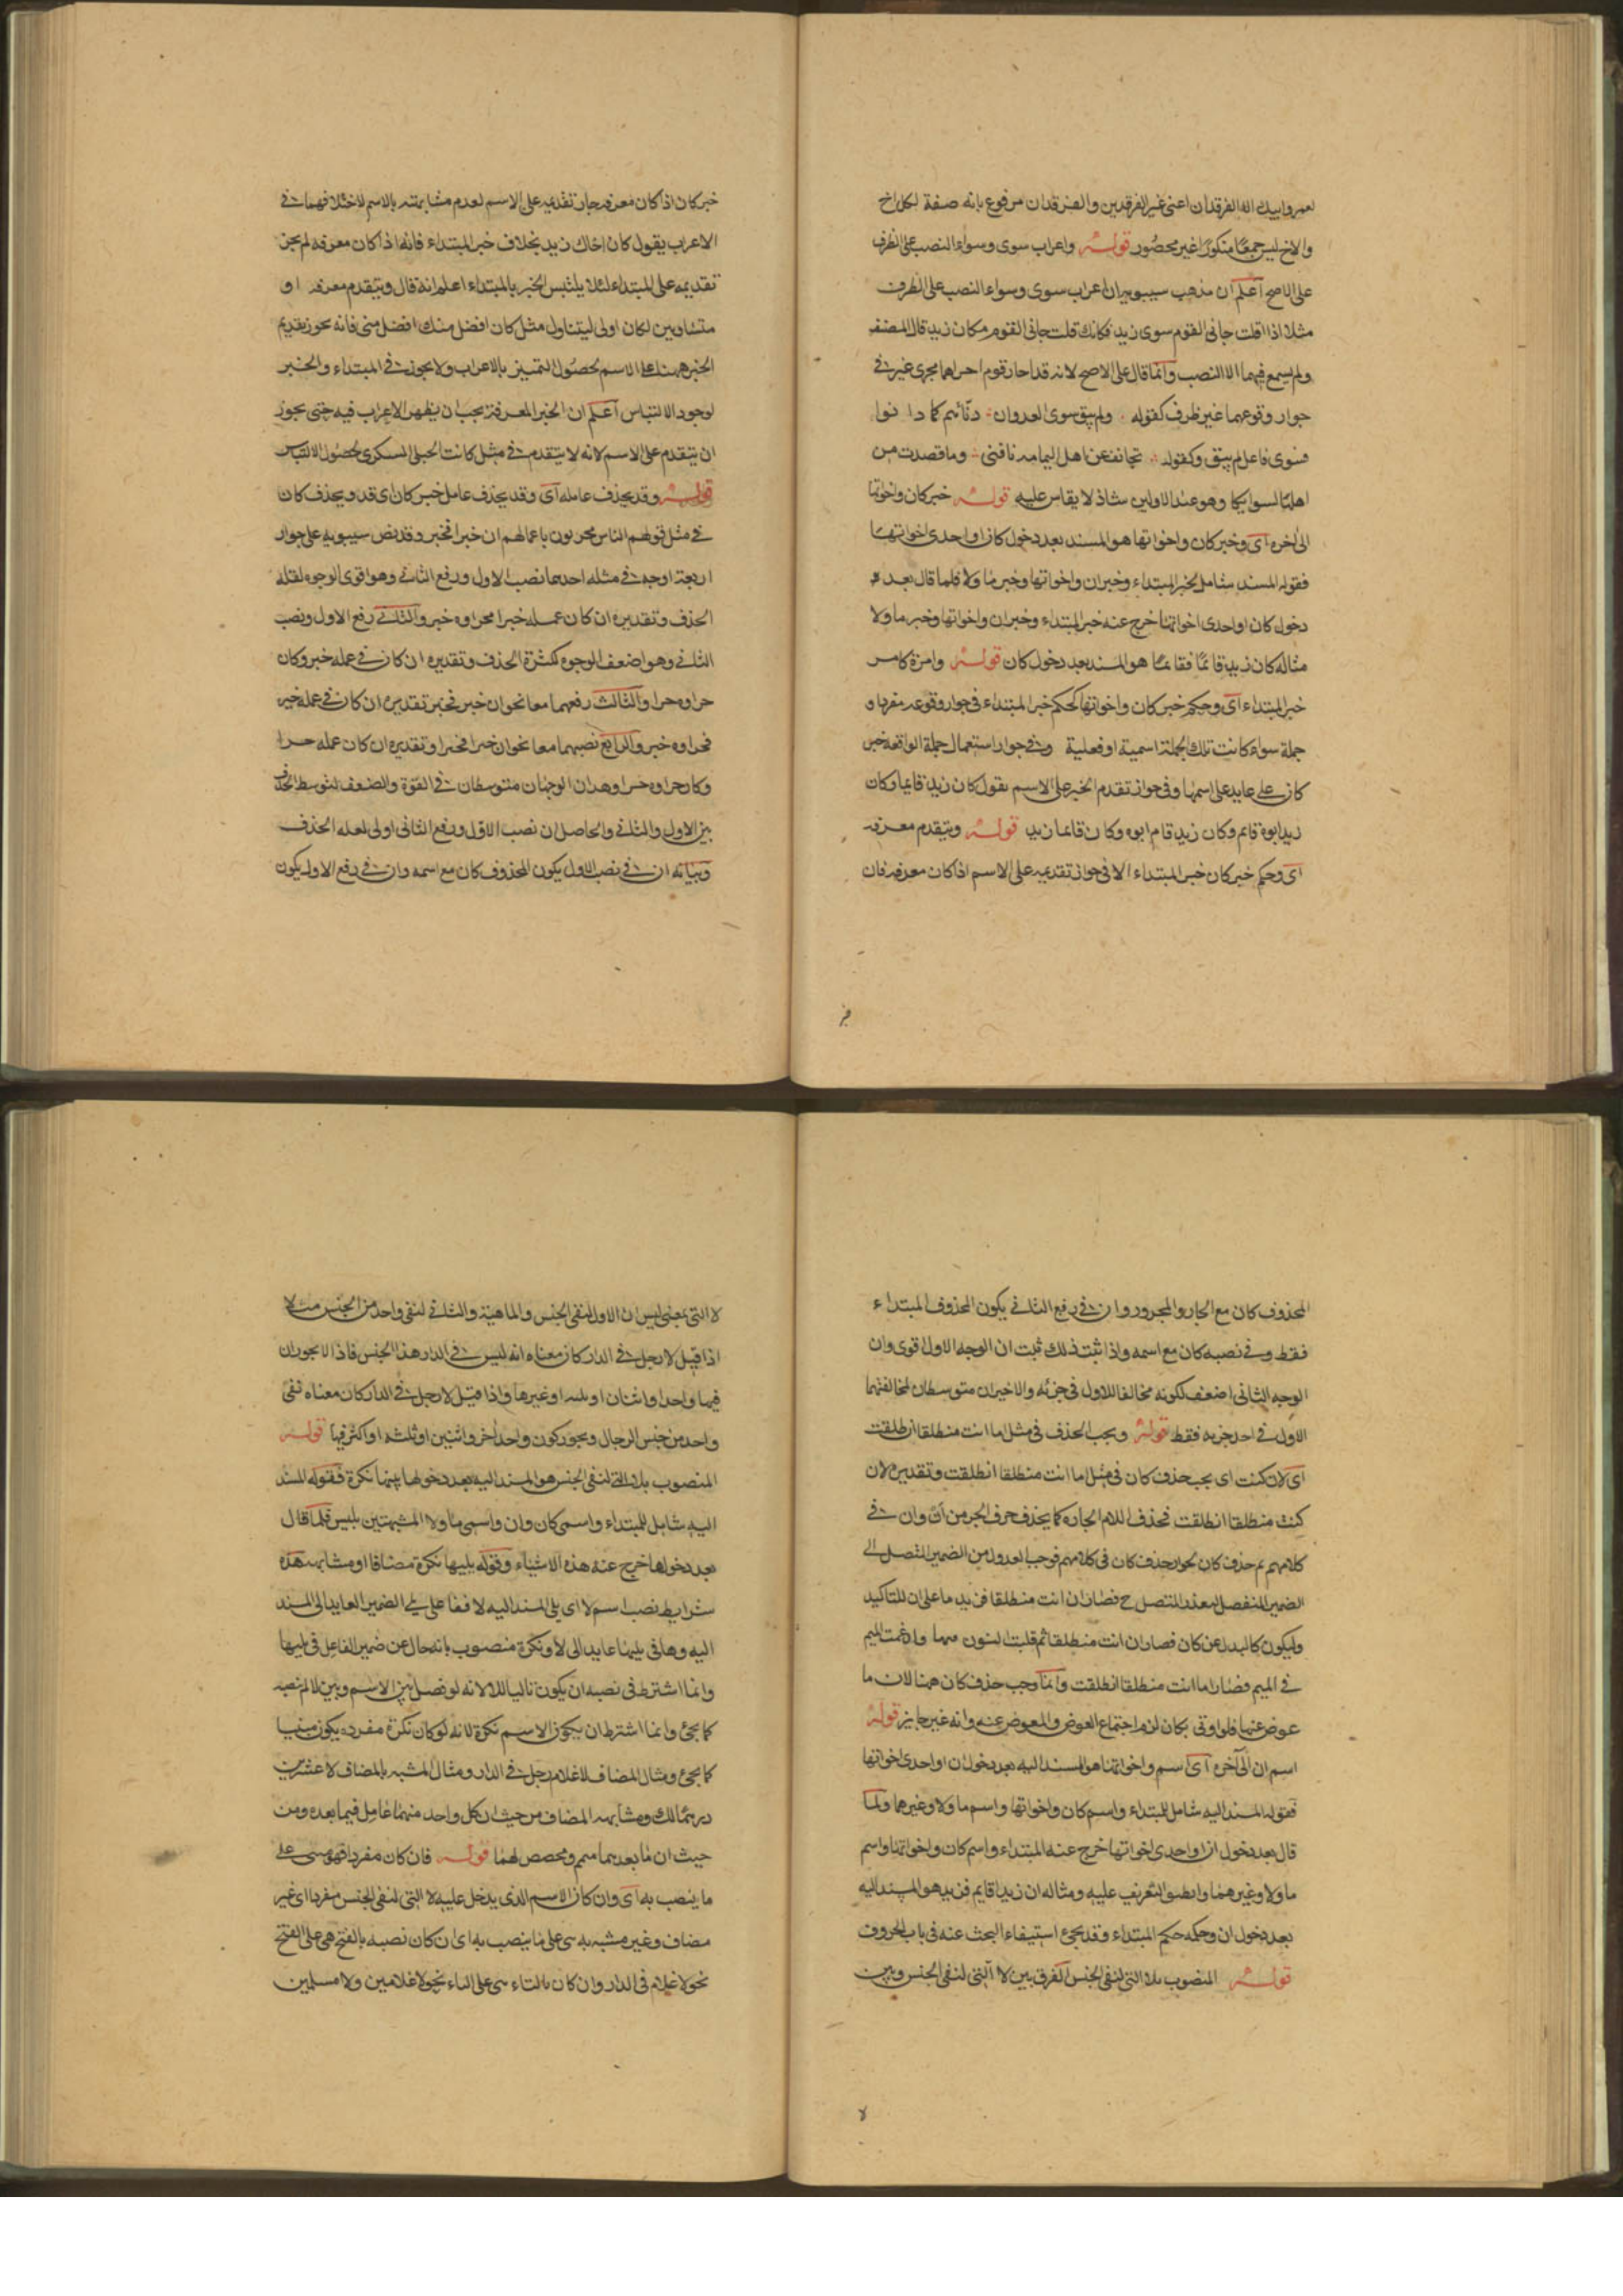 لعمر وابيك الا الفرقدان اعنى غير الفرقدين والفرقدان مرفوع بانه صفة لكل اخ
والاخ ليس جمعا منكورا غير محصور قوله واعراب سوى وسواء النصب على الظرف
على الاصح اعلم ان مذهب سيبويه ان اعراب سوى وسواء النصب على الظرف
مثلا اذا قلت جانى القوم سوى زيد فكانك قلت جانى القوم مكان زيد قال المصنف
ولم يسمع فيهما الا النصب وانما قال على الاصح لانه قد اجاز قوم اجراهما مجرى غير فى
جواز وقوعهما غير ظرف كقوله ولم يبق سوى العدوان دنّاهم كما دانوا
فسوى فاعل لم يبق وكقوله تجانف عن اهل اليمامه ناقتى وما قصدت من
اهلها لسوايكا وهو عند الاولين شاذ لا يقاس عليه قوله خبر كان واخواتها
الى اخره اى وخبر كان واخواتها هو المسند بعد دخول كان او احدى اخواتها
فقوله المسند شامل لخبر المبتداء وخبر ان واخواتها وخبر ما ولا فلما قال بعد
دخول كان او احدى اخواتها خرج عنه خبر المبتداء وخبر ان واخواتها وخبر ما ولا
مثاله كان زيد قائمًا فقائمًا هو المسند بعد دخول كان قوله وامره كامر
خبر المبتداء اى وحكم خبر كان واخواتها كحكم خبر المبتداء فى جواز وقوعه مفردا و
جملة سواء كانت تلك الجملة اسمية او فعلية وفى جواز استعمال جملة الواقعة خبر
كان على عايد على اسمها وفى جواز تقدم الخبر على الاسم يقول كان زيد قايما وكان
زيد ابوه قايم وكان زيد قام ابوه وكان قائما زيد قوله ويتقدم معرفه
اى وحكم خبر كان خبر المبتداء الا فى جواز تقديمه على الاسم اذا كان معرفه فان
خبر
خبر كان اذا كان معرفه جاز تقديمه على الاسم لعدم مشابهته بالاسم لاختلافهما فى
الاعراب يقول كان اخاك زيد بخلاف خبر المبتداء فانه اذا كان معرفه لم يجز
تقديمه على المبتداء لئلا يلتبس الخبر بالمبتداء اعلم انه قال ويتقدم معرفه او
متساويين لكان اولى ليتناول مثل كان افضل منك افضل منى فانه يجوز تقديم
الخبر ههنا على الاسم لحصول التميز بالاعراب ولا يجوز فى المبتداء والخبر
لوجود الالتباس اعلم ان الخبر المعرفة يجب ان يظهر الاعراب فيه حتى يجوز
ان يتقدم على الاسم لانه لا يتقدم فى مثل كانت الحبلى السكرى لحصول الالتباس
قوله وقد يحذف عامله اى وقد يحذف عامل خبر كان اى قد ويحذف كان
فى مثل قولهم الناس مجزيون باعمالهم ان خيرا فخير وقد نص سيبويه على جواز
اربعة اوجه فى مثله احدها نصب الاول ورفع الثانى وهو اقوى الوجوه لقلة
الحذف وتقديره ان كان عمله خيرا فجزاوه خير والثانى رفع الاول ونصب
الثانى وهو اضعف الوجوه لكثرة الحذف وتقديره ان كان فى عمله خير وكان
جزاوه خيرا والثالث رفعهما معا نحو ان خير فخير تقديره ان كان فى عمله خير
فجزاوه خير والرابع نصبهما معا نحو ان خيرا فخيرا وتقديره ان كان عمله خيرا
وكان جزاوه خيرا وهذان الوجهان متوسطان فى القوة والضعف لتوسط الحذف
بين الاول والثانى والحاصل ان نصب الاول ورفع الثانى اولى لعله الحذف
وبيانه ان فى نصب الاول يكون المحذوف كان مع اسمه وان فى رفع الاول يكون
المحذوف كان مع الجار والمجرور وان فى رفع الثانى يكون المحذوف المبتداء
فقط وفى نصبه كان مع اسمه واذا ثبت ذلك ثبت ان الوجه الاول اقوى وان
الوجه الثانى اضعف لكونه مخالفا للاول فى جزئه والاخيران متوسطان لمخالفتهما
الاول فى احد جزيه فقط قوله ويجب الحذف فى مثل اما انت منطلقا انطلقت
اى لان كنت اى يجب حذف كان فى مثل اما انت منطلقا انطلقت وتقديره لان
كنت منطلقا انطلقت فحذف اللام الجاره كما يحذف حرف الجر من ان وان فى
كلامهم ثم حذف كان لجواز حذف كان فى كلامهم فوجب العدول من الضمير المتصل الى
الضمير المنفصل لتعذر المتصل ح فصار ان انت منطلقا فزيد ما على ان للتاكيد
وليكون كالبدل عن كان فصار ان انت منطلقا ثم قلبت النون ميما وادغمت الميم
فى الميم فصار اما انت منطلقا انطلقت وانما وجب حذف كان ههنا لان ما
عوض عنها فلو اوتى بكان لزم اجتماع العوض والمعوض عنه وانه غير جايز قوله
اسم ان الى آخره اى اسم واخواتها هو المسند اليه بعد دخول ان او احدى اخواتها
فقوله المسند اليه شامل للمبتداء واسم كان واخواتها واسم ما ولا وغيرهما ولما
قال بعد دخول ان او احدى اخواتها خرج عنه المبتداء واسم كان واخواتها واسم
ما ولا وغيرهما وانطبق التعريف عليه ومثاله ان زيدا قايم فزيد هو المسند اليه
بعد دخول ان وحكمه حكم المبتداء وقد يجئ استيفاء البحث عنه فى باب الحروف
قوله المنصوب بلا التى لنفى الجنس الفرق بين لا التى لنفى الجنس وبين
لا
لا التى بمعنى ليس ان الاول لنفى الجنس والماهية والثانى لنفى واحد من الجنس مثلا
اذا قيل لا رجل فى الدار كان معناه انه ليس فى الدار هذا الجنس فاذا لا يجوز ان
فيها واحدا واثنان او ثلثه او غيرها واذا قيل لا رجل فى الدار كان معناه نفى
واحد من جنس الرجال ويجوز كون واحد آخر واثنين او ثلثه او اكثر فيها قوله
المنصوب بلا التى لنفى الجنس هو المسند اليه بعد دخولها يليها نكرة فقوله المسند
اليه شامل للمبتداء واسمى كان وان واسمى ما ولا المشبهتين بليس فلما قال
بعد دخولها خرج عنه هذه الاشياء وقوله يليها نكرة مضافا او مشابهه هذه
شرايط نصب اسم لا اى يلى المسند اليه لا ففاعل يلى الضمير العايد الى المسند
اليه وها فى يليها عايد الى لا ونكرة منصوب بانه حال عن ضمير الفاعل فى يليها
وانما اشترط فى نصبه ان يكون تاليا للا لانه لو فصل بين الاسم وبين لا لم نصبه
كما يجئ وانما اشترط ان يكون الاسم نكرة لانه لو كان نكرة مفرده يكون مبنيا
كما يجئ ومثال المضاف لا غلام رجل فى الدار ومثال المشبه بالمضاف لا عشرين
درهمًا لك ومشابهه المضاف من حيث ان كل واحد منهما عامل فيما بعده ومن
حيث ان ما بعدهما متمم ومخصص لهما قوله فان كان مفردا فهو مبنى على
ما ينصب به اى وان كان الاسم الذى يدخل عليه لا التى لنفى الجنس مفردا اى غير
مضاف وغير مشبه به بنى على ما ينصب به اى ان كان نصبه بالفتح بنى على الفتح
نحو لا غلام فى الدار وان كان بالياء بنى على الياء نحو لا غلامين ولا مسلمين